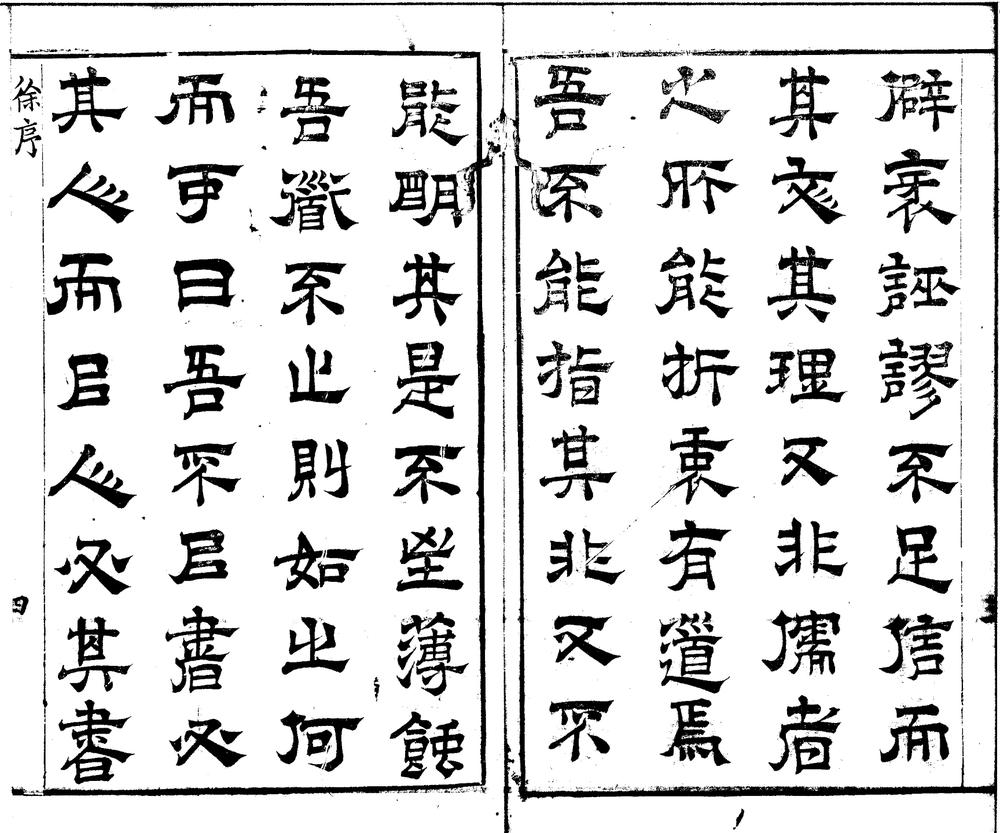 僻衺誣謬不足信而
其彣其理又非儒者
之所能折衷有道焉
吾不能指其非又不
能明其是不坐薄蝕
吾道不止則如之何
而可曰吾不以書必
其人而以人必其書
徐序
四